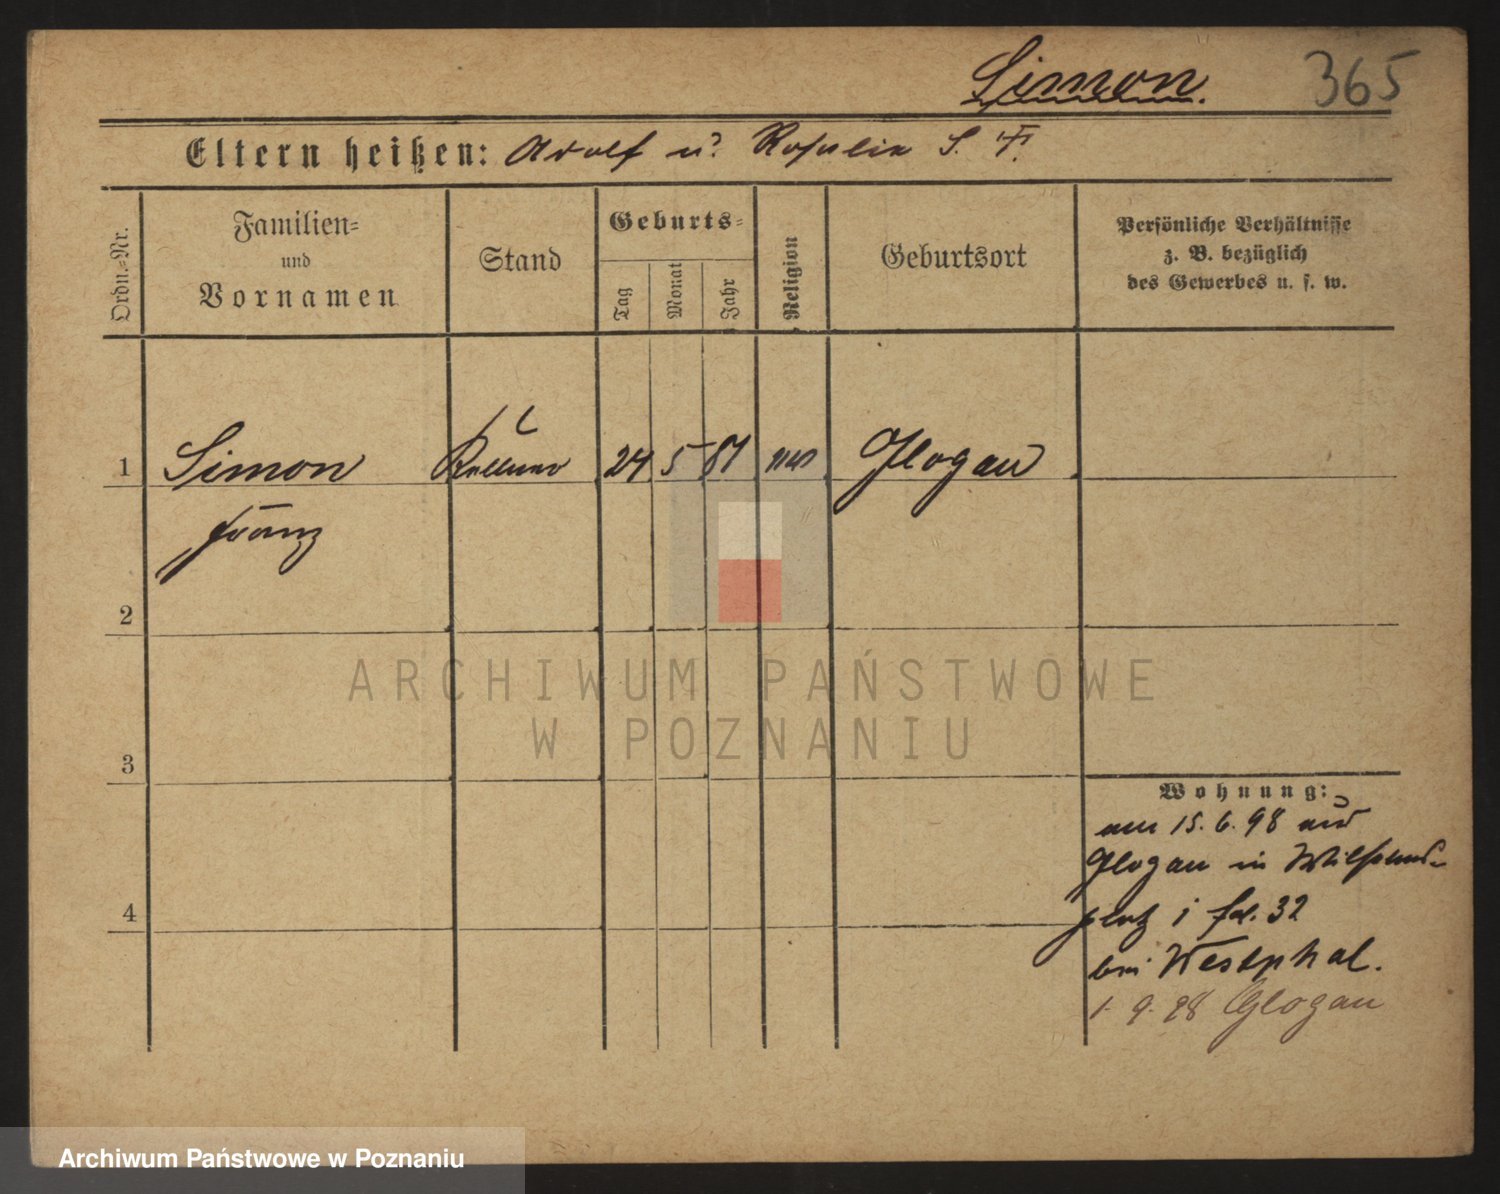 Simon.
365
Eltern heißen: Adolf u. Rosalie S. †.
Ordn.-Nr.
Familien-
und
Vornamen
Stand
Geburts-
Tag
Monat
Jahr
Religion
Geburtsort
Persönliche Verhältnisse
z. B. bezüglich
des Gewerbes u. s. w.
1 Simon Kellner 24 5 81 Glogau
Franz
2
3
4
Wohnung:
am 15. 6. 98 aus
Glogau in Wilhelms-
platz
bei Westphal.
1. 9. 98 Glogau
ARCHIWUM PAŃSTWOWE
W POZNANIU
Archiwum Państwowe w Poznaniu